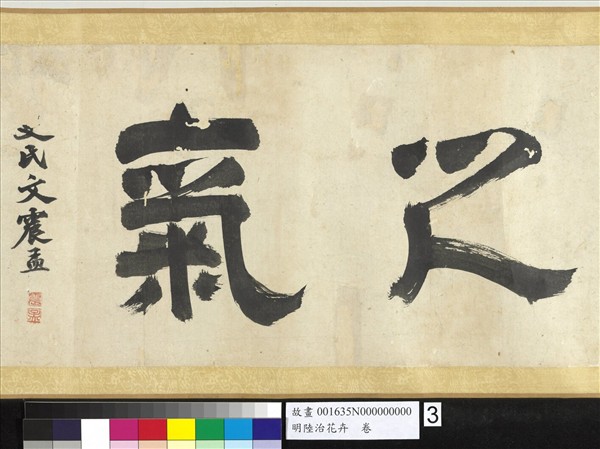 之氣
史氏文震孟
故畫 001635N000000000
明陸治花卉 卷
3